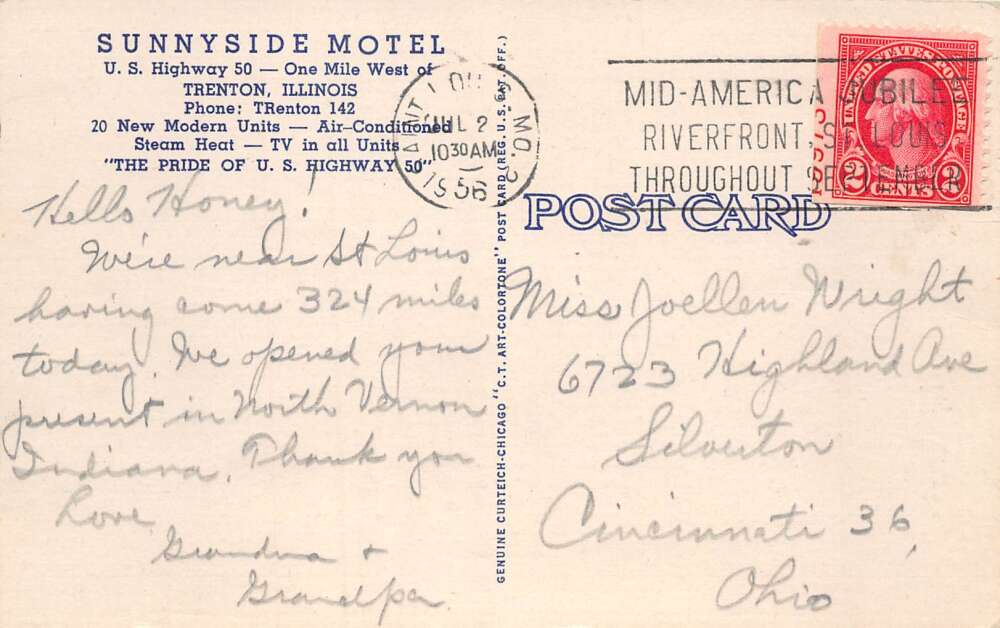 SUNNYSIDE MOTEL
U. S. Highway 50 — One Mile West of
TRENTON, ILLINOIS
Phone: TRenton 142
20 New Modern Units — Air-Conditioned
Steam Heat — TV in all Units
"THE PRIDE OF U. S. HIGHWAY 50"
Hello Honey!
We're near St Louis
having come 324 miles
today. We opened your
present in North Vernon
Indiana. Thank you
Love
Grandma +
Grandpa
GENUINE CURTEICH-CHICAGO "C. T. ART-COLORTONE" POST CARD (REG. U. S. PAT. OFF.)
SAINT LOUIS, MO. 2
JUL 2
10 30 AM
1956
MID-AMERICA JUBILEE
RIVERFRONT, ST. LOUIS,
THROUGHOUT SEPTEMBER
UNITED STATES POSTAGE
2 2
POST CARD
Miss Joellen Wright
6723 Highland Ave
Silverton
Cincinnati 36,
Ohio